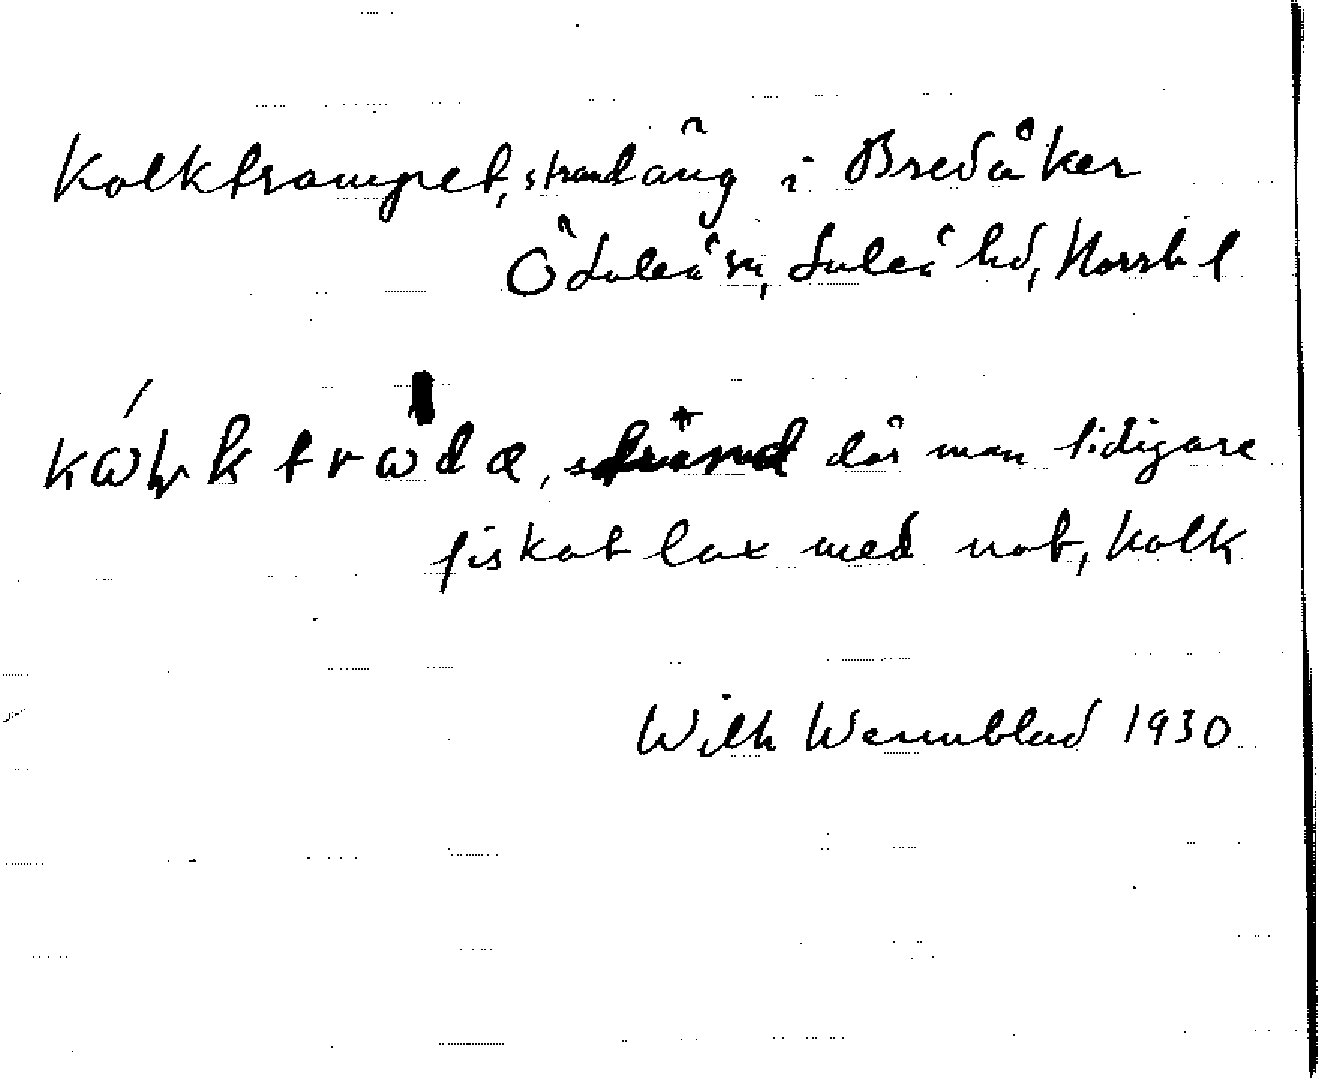 Kolktrampet, strandäng i Bredåker
Ö Luleå sn, Luleå hd, Norrb l
där man tidigare
fiskat lax med not, kolk
Wilh Wennblad 1930